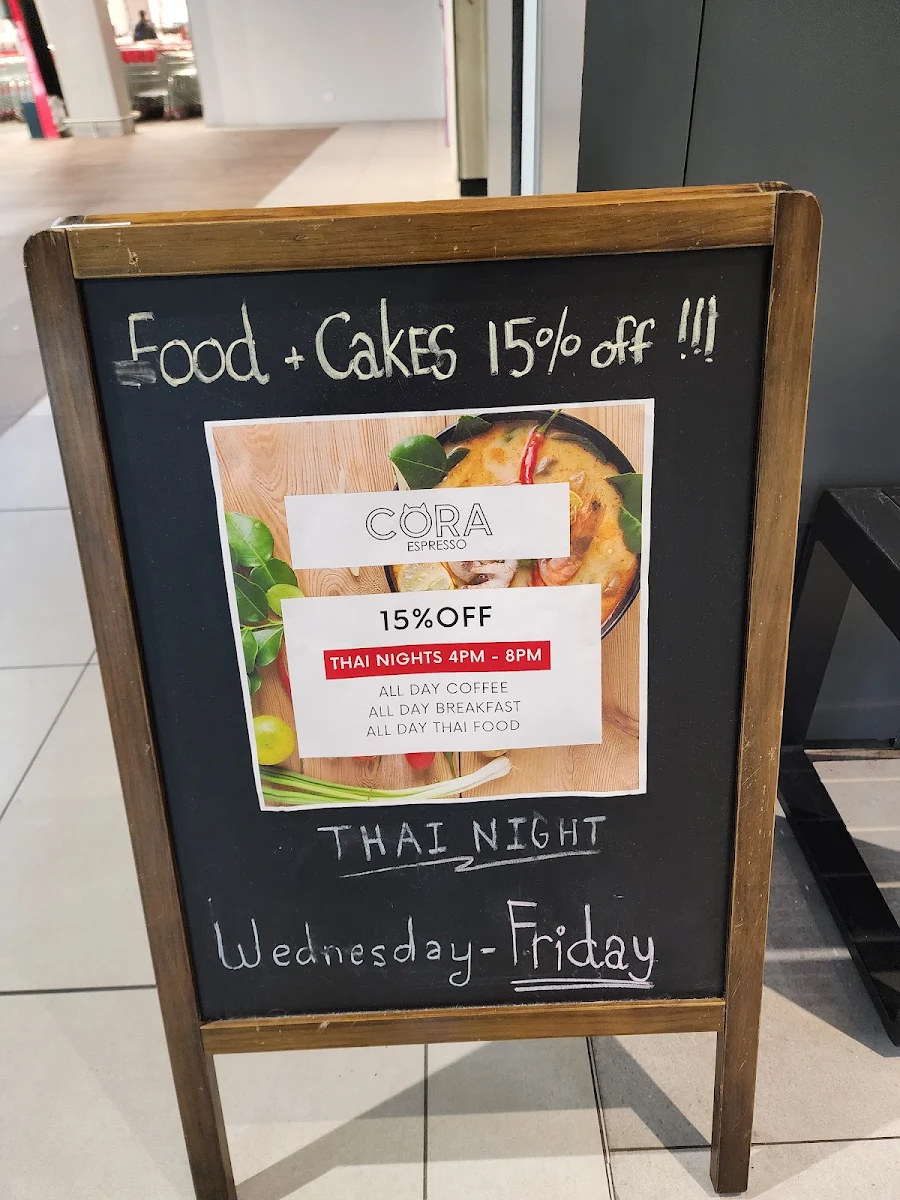 Food + CaKES 15% off !!!
CORA
ESPRESSO
15%OFF
THAI NIGHTS 4PM - 8PM
ALL DAY COFFEE
ALL DAY BREAKFAST
ALL DAY THAI FOOD
THAI NIGHT
Wednesday - Friday